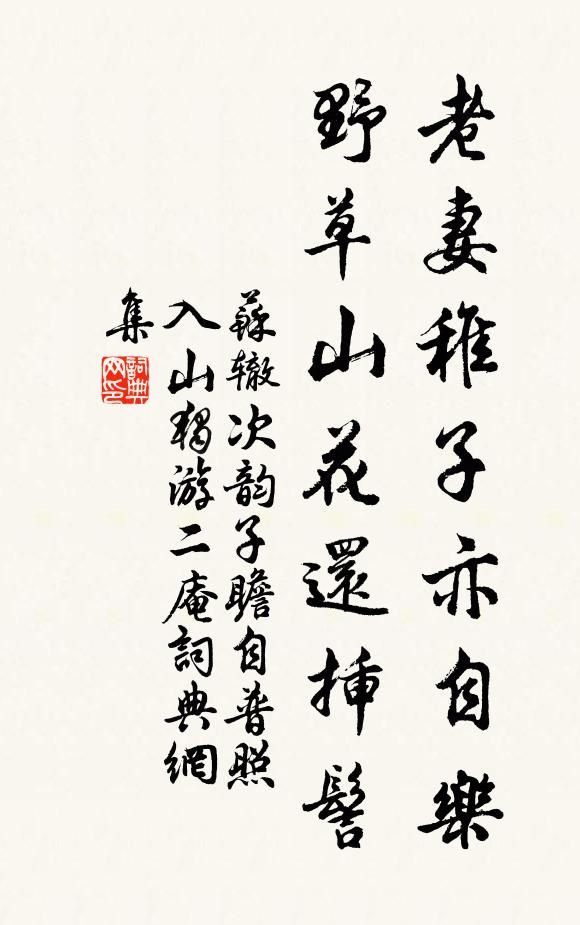 老妻稚子亦自樂
野草山花還插髻
蘇辙次韵子瞻自普照
入山獨游二庵詞典網
集
詞典网印